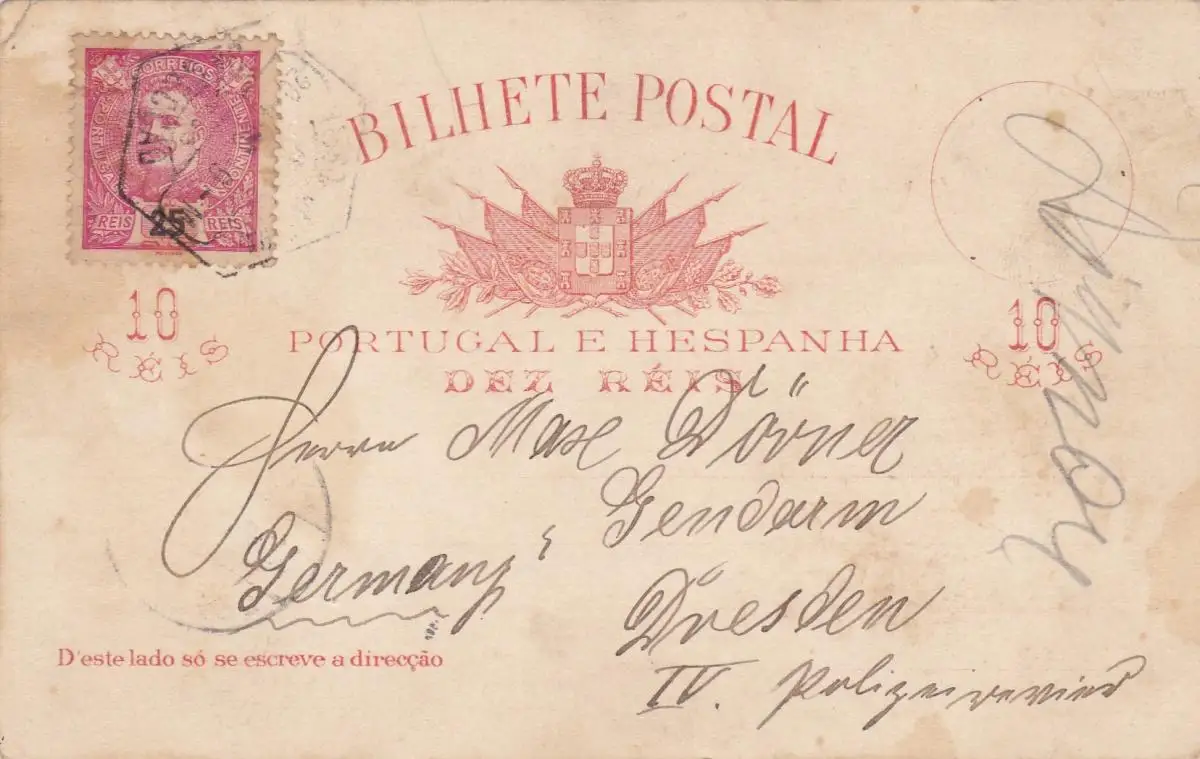 CORREIOS
PORTUGAL
CONTINENTE
REIS 25 REIS
BILHETE POSTAL
10 RÉIS
10 RÉIS
PORTUGAL E HESPANHA
DEZ RÉIS
Herrn Max Dörner
Gendarm
Germany
Dresden
IV. Polizeirevier
D'este lado só se escreve a direcção